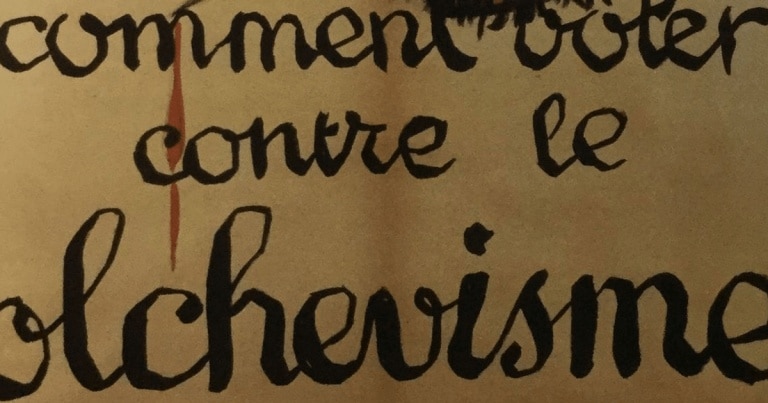 comment voter
contre le
olchevisme